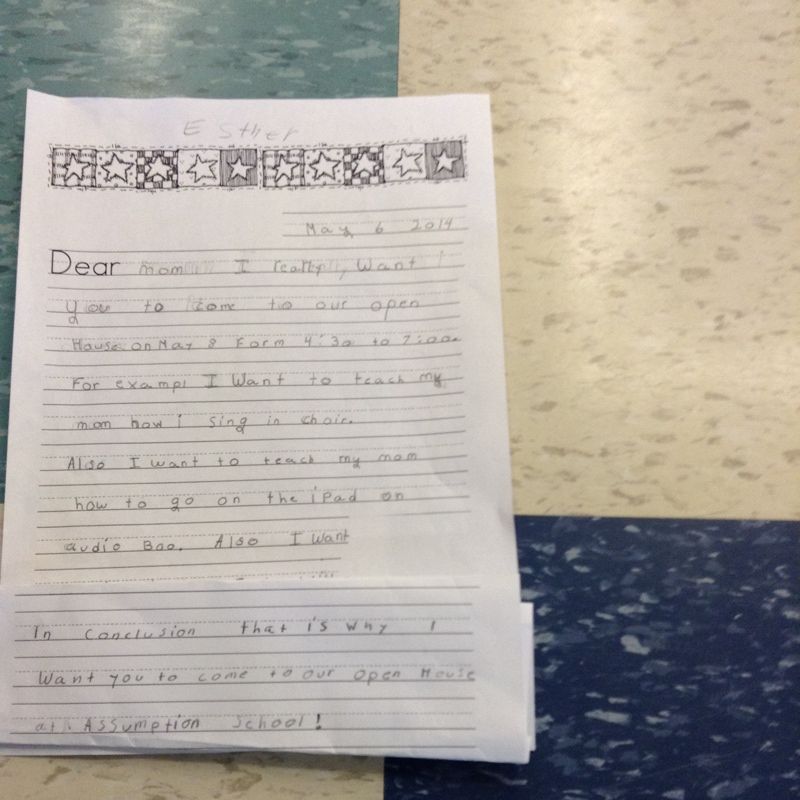 Esther
May 6 2014
Dear mom I really, Want
you to come to our open
House on May 8 Form 4:30 to 7:00.
For exampl I Want to teach my
mom how i sing in choir.
Also I want to teach my mom
how to go on the iPad on
audio Boo. Also I want
In conclusion that is why I
Want you to come to our open House
at. Assumption School!